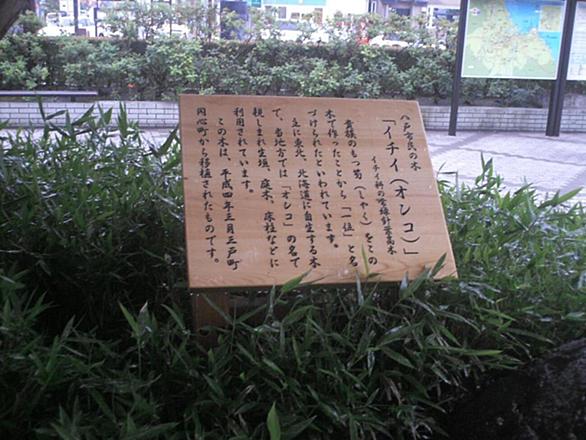 八戸市民の木
「イチイ（オンコ）」
イチイ科の常緑針葉高木
貴族のもつ笏（しゃく）をこの
木で作ったことから「一位」と名
づけられたといわれています。
主に東北、北海道に自生する木
で、当地方では「オンコ」の名で
親しまれ生垣、庭木、床柱などに
利用されています。
この木は、平成四年三月三戸町
同心町から移植されたものです。